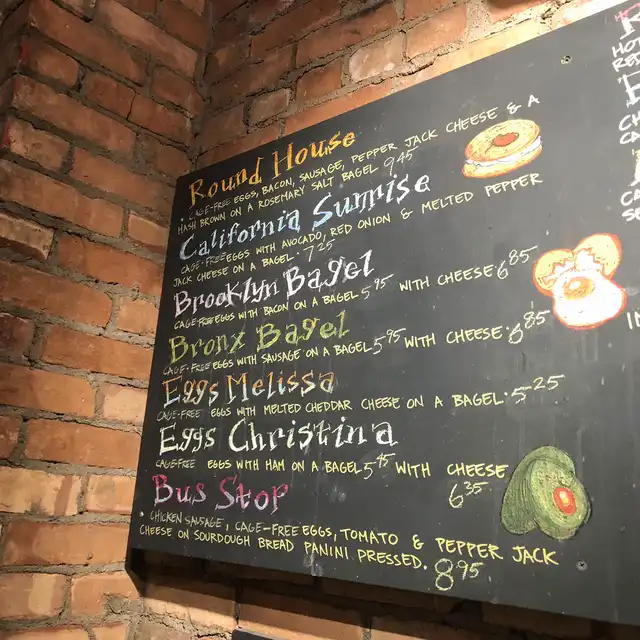 Round House
• CAGE-FREE EGGS, BACON, SAUSAGE, PEPPER JACK CHEESE & A
HASH BROWN ON A ROSEMARY SALT BAGEL 9.45
California Sunrise
CAGE-FREE EGGS WITH AVOCADO, RED ONION & MELTED PEPPER
JACK CHEESE ON A BAGEL. 7.25
Brooklyn Bagel
CAGE-FREE EGGS WITH BACON ON A BAGEL 5.95 WITH CHEESE 6.85
Bronx Bagel
CAGE-FREE EGGS WITH SAUSAGE ON A BAGEL 5.95 WITH CHEESE 6.85
Eggs Melissa
CAGE-FREE EGGS WITH MELTED CHEDDAR CHEESE ON A BAGEL. 5.25
Eggs Christina
CAGE FREE EGGS WITH HAM ON A BAGEL 5.45 WITH CHEESE
6.35
Bus Stop
• CHICKEN SAUSAGE, CAGE-FREE EGGS, TOMATO & PEPPER JACK
CHEESE ON SOURDOUGH BREAD PANINI PRESSED. 8.95